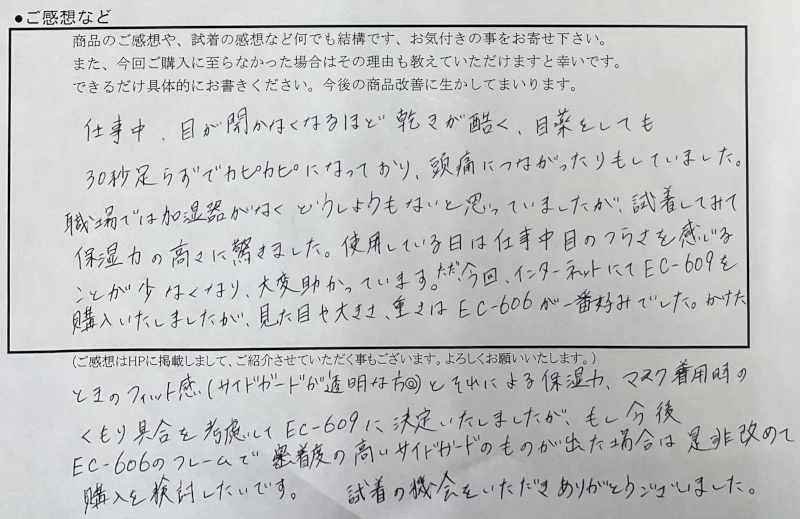 ●ご感想など
商品のご感想や、試着の感想など何でも結構です、お気付きの事をお寄せ下さい。
また、今回ご購入に至らなかった場合はその理由も教えていただけますと幸いです。
できるだけ具体的にお書きください。今後の商品改善に生かしてまいります。
仕事中、目が開かなくなるほど乾きが酷く、目薬をしても
30秒足らずでカピカピになっており、頭痛につながったりもしていました。
職場では加湿器がなくどうしようもないと思っていましたが、試着してみて
保湿力の高さに驚きました。使用している日は仕事中目のつらさを感じる
ことが少なくなり、大変助かっています。ただ、今回、インターネットにてEC-609を
購入いたしましたが、見た目や大きさ、重さはEC-606が一番好みでした。かけた
(ご感想はHPに掲載しまして、ご紹介させていただく事もございます。よろしくお願いいたします。)
ときのフィット感(サイドガードが透明な方◎)とそれによる保湿力、マスク着用時の
くもり具合を考慮してEC-609に決定いたしましたが、もし今後
EC-606のフレームで密着度の高いサイドガードのものが出た場合は是非改めて
購入を検討したいです。 試着の機会をいただきありがとうございました。